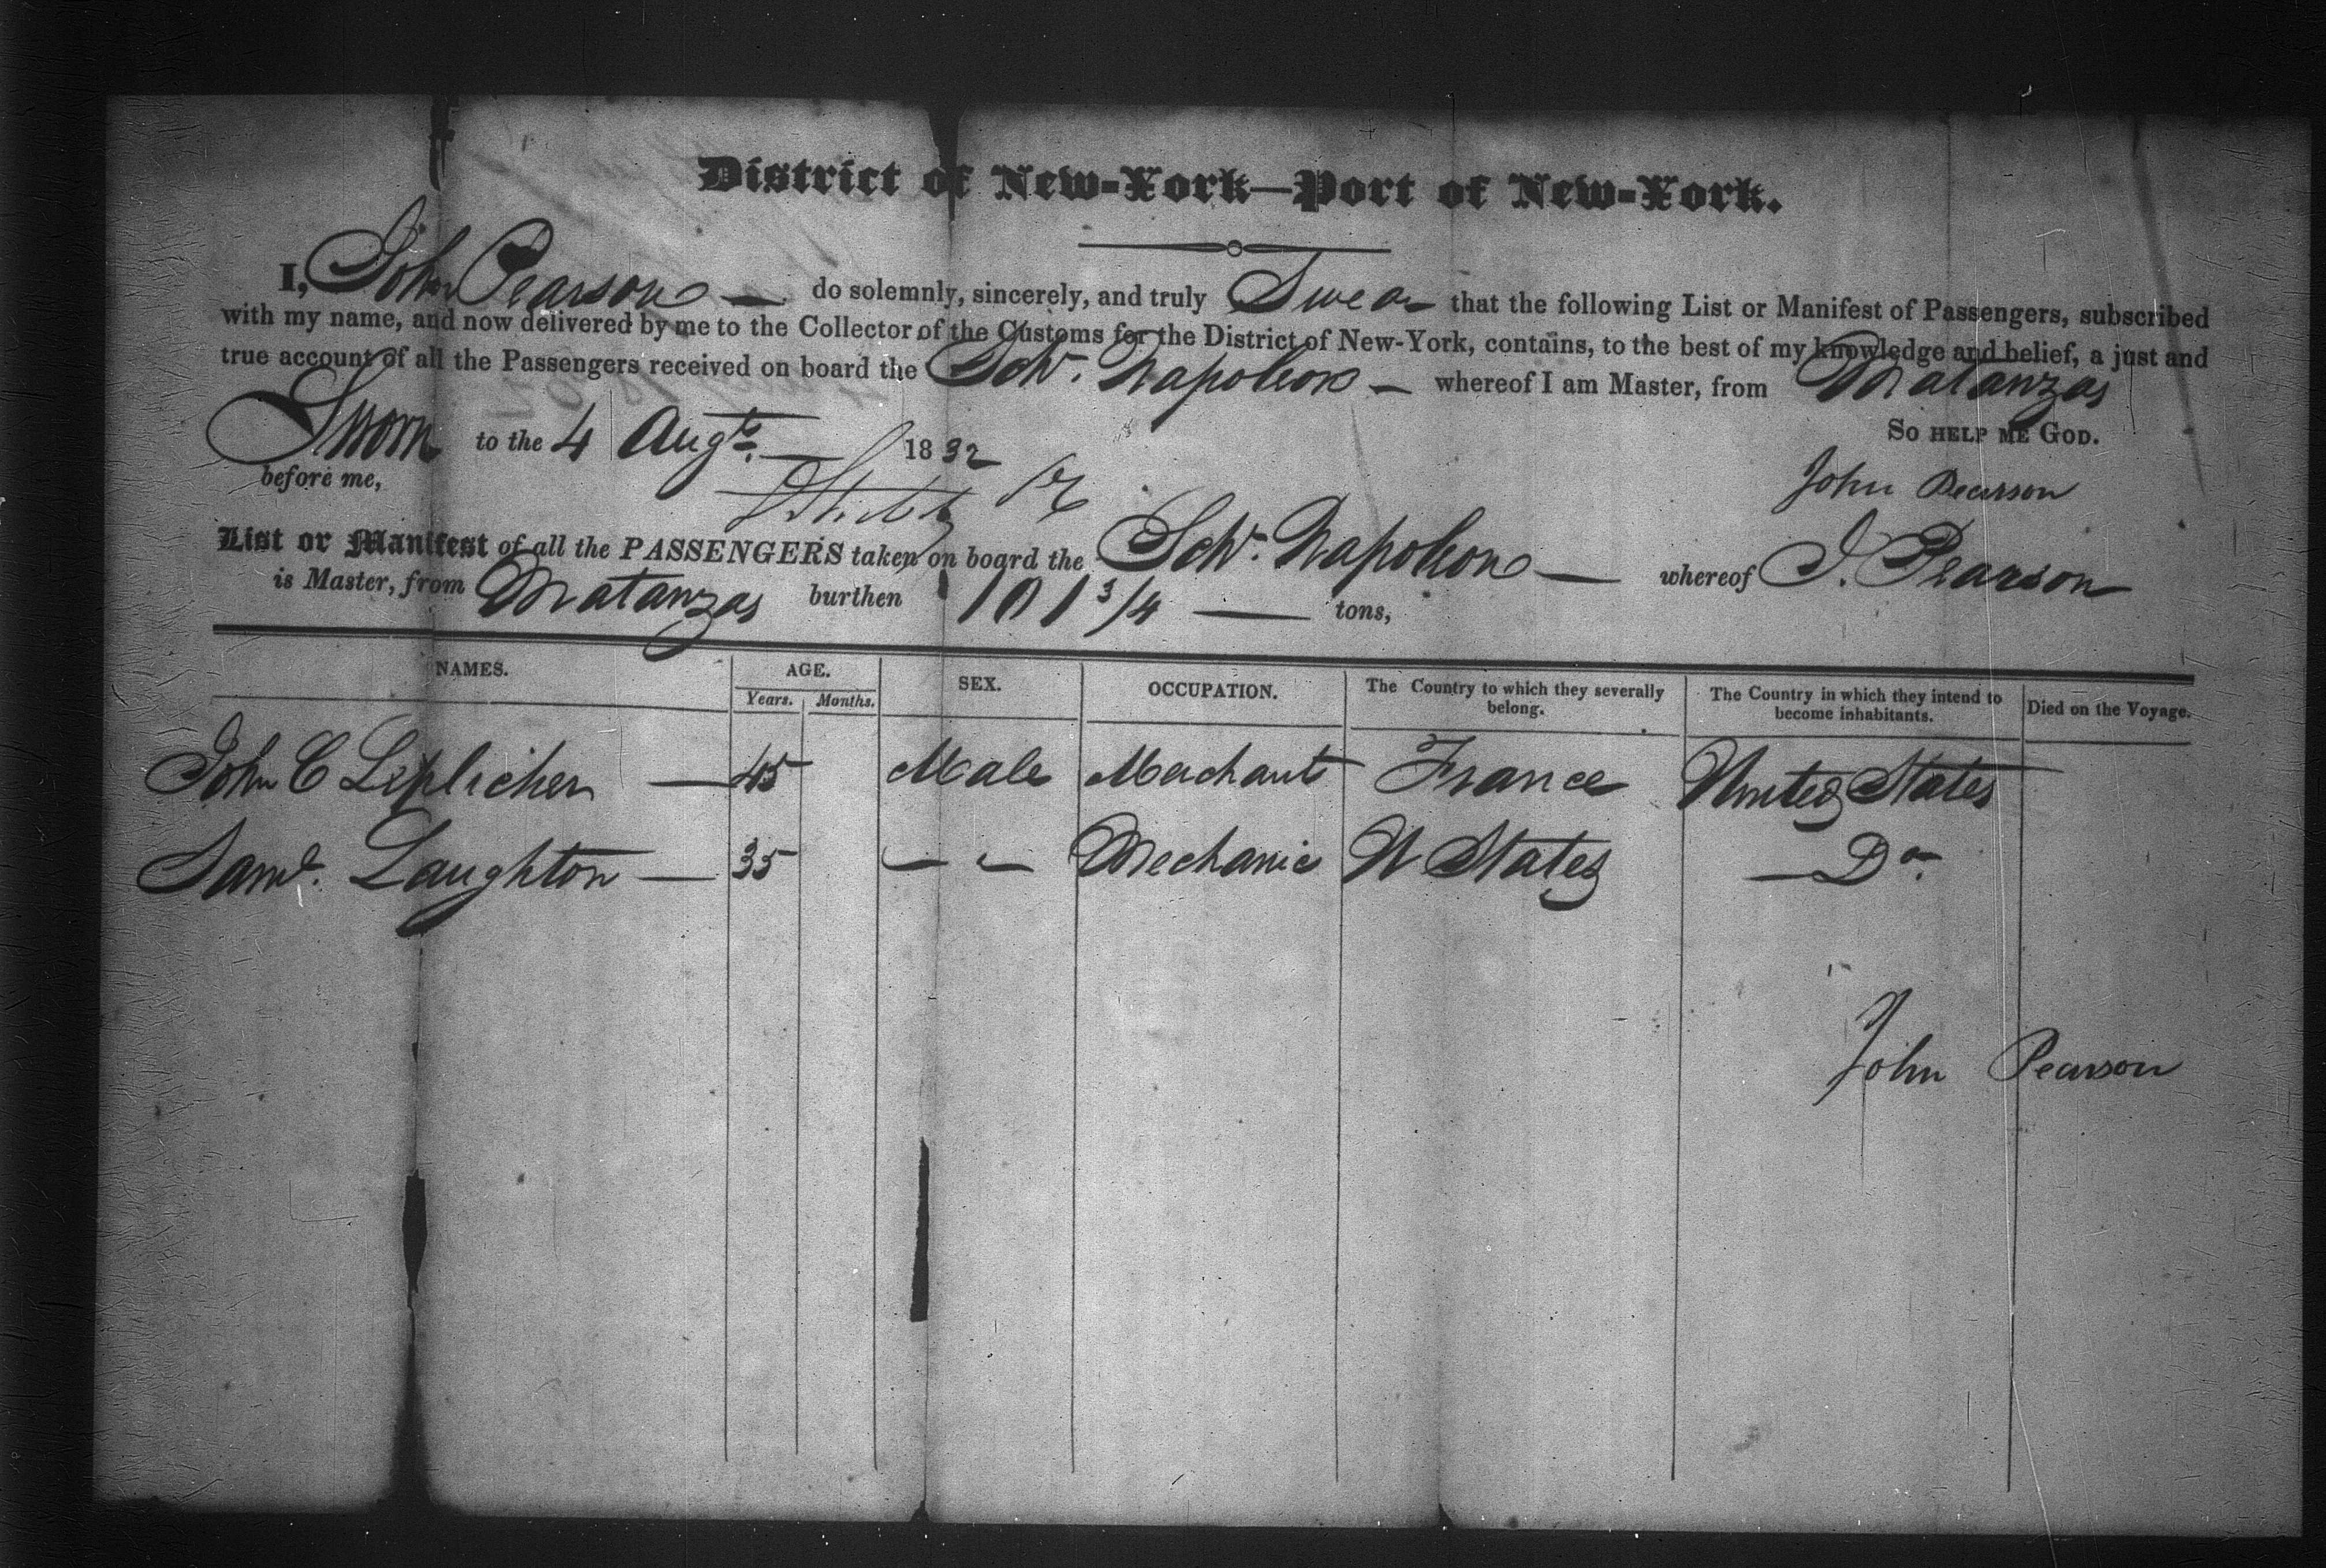 District of New-York—Port of New-York.
I, John Pearson — do solemnly, sincerely, and truly Swear that the following List or Manifest of Passengers, subscribed
with my name, and now delivered by me to the Collector of the Customs for the District of New-York, contains, to the best of my knowledge and belief, a just and
true account of all the Passengers received on board the Schr. Napoleon — whereof I am Master, from Matanzas
Sworn to the 4 Augt. — 1832 So help me God.
before me, John Pearson
List or Manifest of all the PASSENGERS taken on board the Schr. Napoleon — whereof J. Pearson
is Master, from Matanzas burthen 101 3/4 — tons,
NAMES. AGE. SEX. OCCUPATION. The Country to which they severally belong. The Country in which they intend to become inhabitants. Died on the Voyage.
Years. Months.
John C — 45 Male Merchant France United States
Saml. Laughton — 35 — — Mechanic U States — Do.
John Pearson